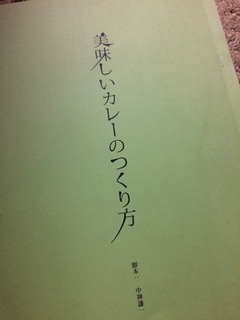 美味しいカレーのつくり方
脚本 : 中神謙一